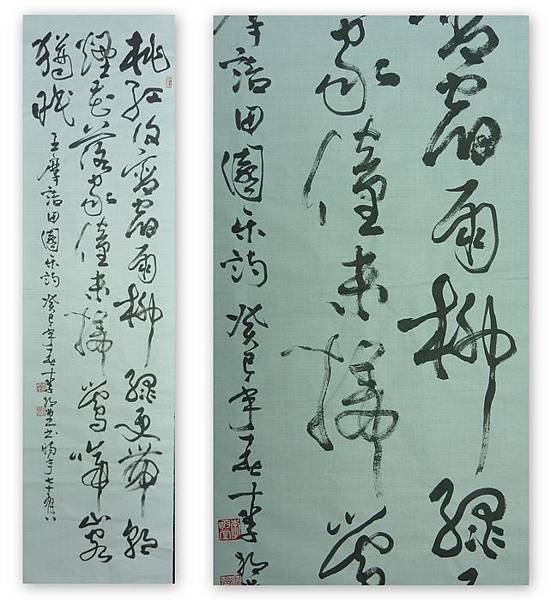 桃紅復含宿雨柳綠更帶朝
煙花落家僮未掃鶯啼山客
猶眠
王摩詰田園樂詩 癸巳年春 李
含宿雨柳綠
家僮未掃鶯
摩詰田園樂詩 癸巳年春 李